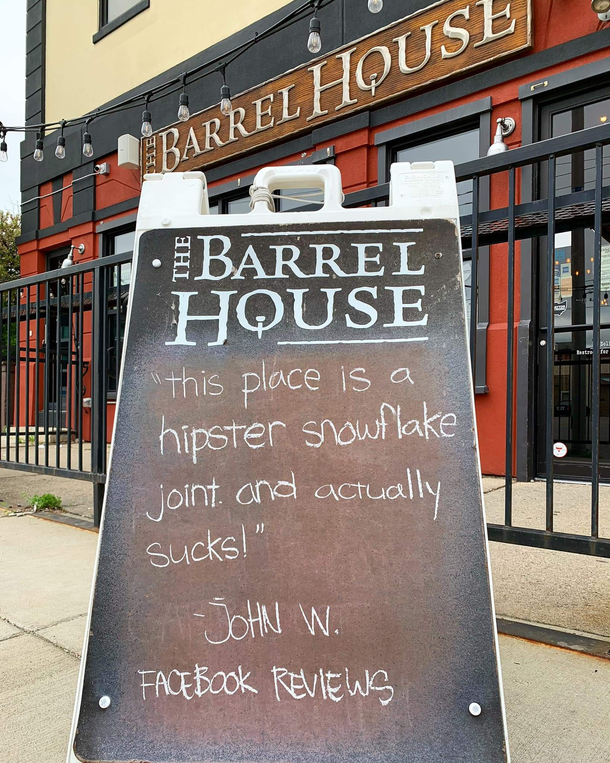 THE BARREL HOUSE
THE BARREL
HOUSE
"this place is a
hipster snowflake
joint. and actually
sucks!"
-JOHN W.
FACEBOOK REVIEWS